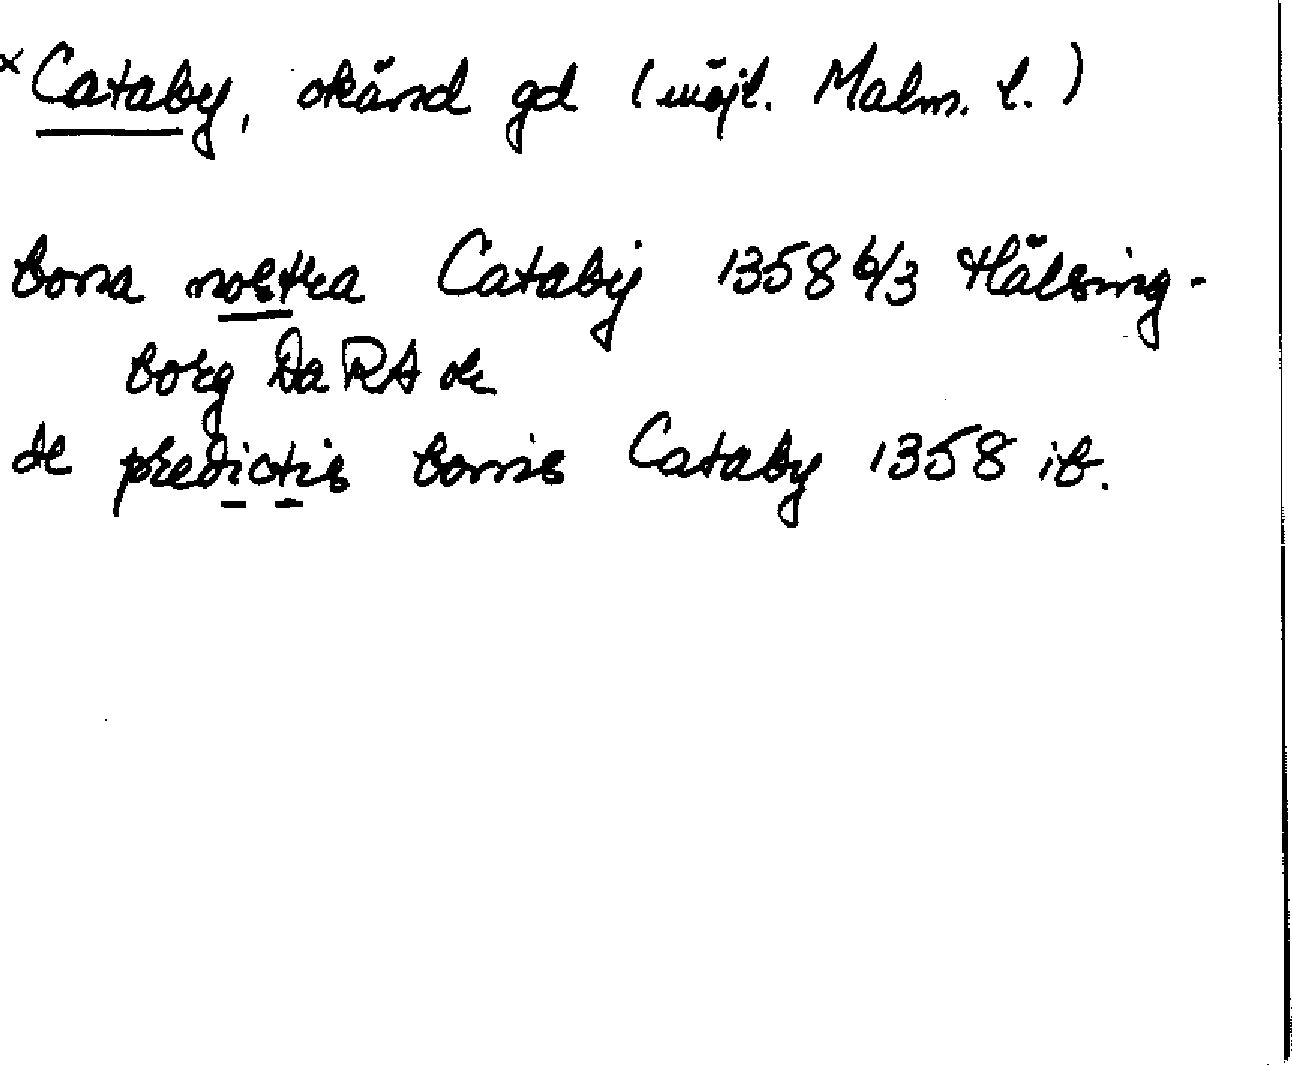 × Cataby, okänd gd (möjl. Malm. l.)
bona nostra Catabÿ 1358 6/3 Hälsing-
borg DaRA or
de predictis bonis Cataby 1358 ib.